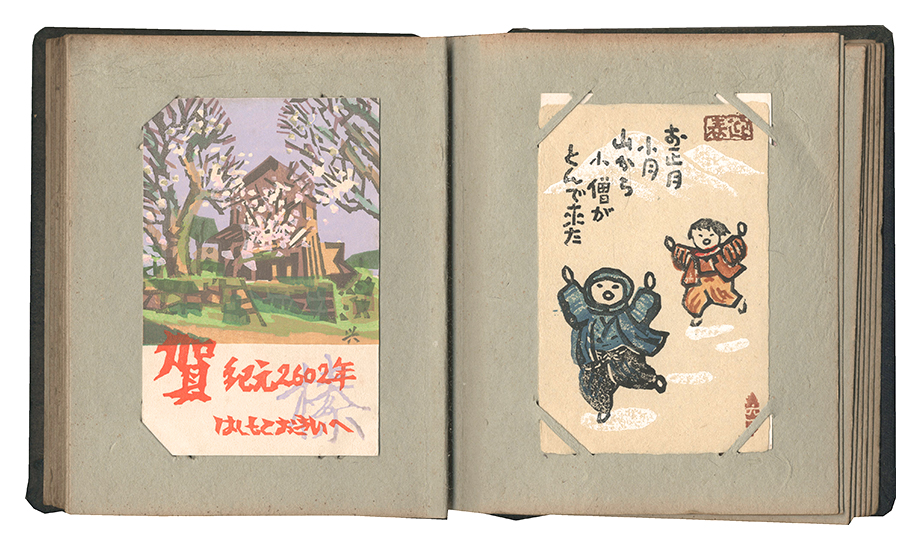 賀 紀元2602年
はしもとおきいへ
迎春
お正月
小月
山から
小僧が
とんで来た